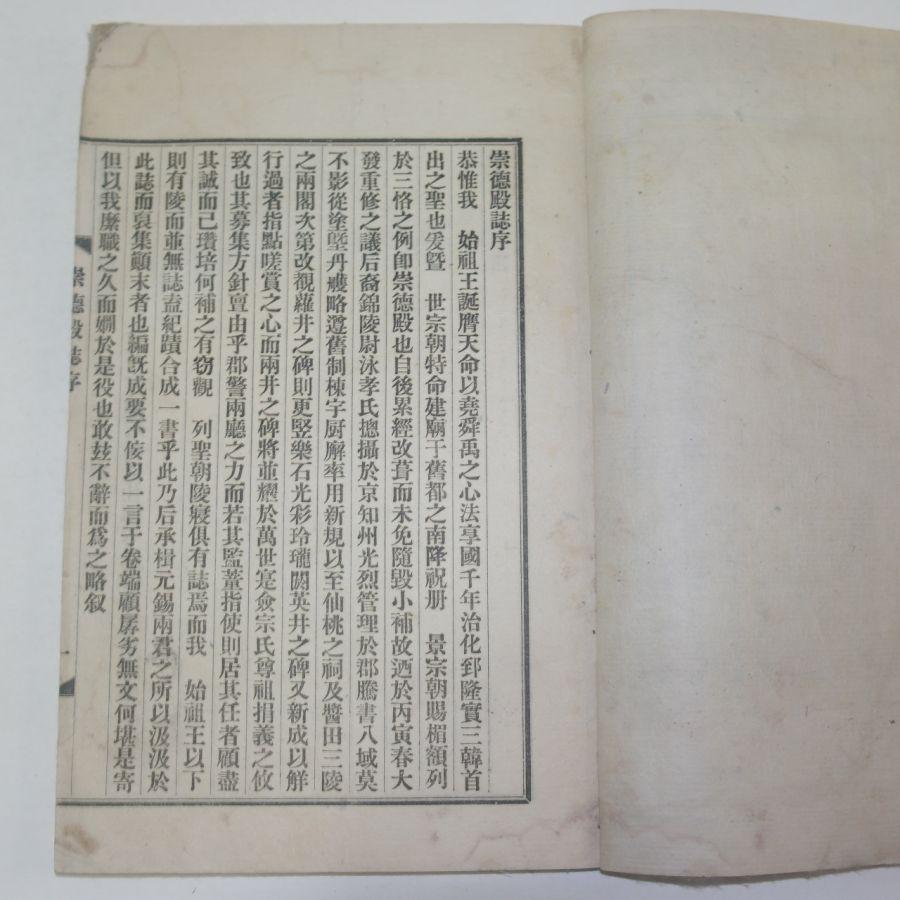 崇德殿誌序
恭惟我　始祖王誕膺天命以堯舜禹之心法享國千年治化郅隆實三韓首
出之聖也爰曁　世宗朝特命建廟于舊都之南降祝册　景宗朝賜楣額列
於三恪之例卽崇德殿也自後累經改葺而未免隨毀小補故迺於丙寅春大
發重修之議后裔錦陵尉泳孝氏摠攝於京知州光烈管理於郡騰書八域莫
不影從塗墍丹雘略遵舊制棟宇厨廨率用新規以至仙桃之祠及醬田三陵
之兩閣次第改覩蘿井之碑則更竪樂石光彩玲瓏閼英井之碑又新成以觧
行過者指點嗟賞之心而兩井之碑將並耀於萬世寔僉宗氏尊祖捐義之攸
致也其募集方針亶由乎郡警兩廳之力而若其監蕫指使則居其任者顧盡
其誠而己瓚培何補之有窃觀　列聖朝陵寢俱有誌焉而我　始祖王以下
則有陵而並無誌盍紀蹟合成一書乎此乃后承楫元錫兩君之所以汲汲於
此誌而裒集顚末者也編旣成要不侫以一言于卷端顧孱劣無文何堪是寄
但以我縻職之久而嫻於是役也敢玆不辭而爲之略叙
崇德殿誌序
一